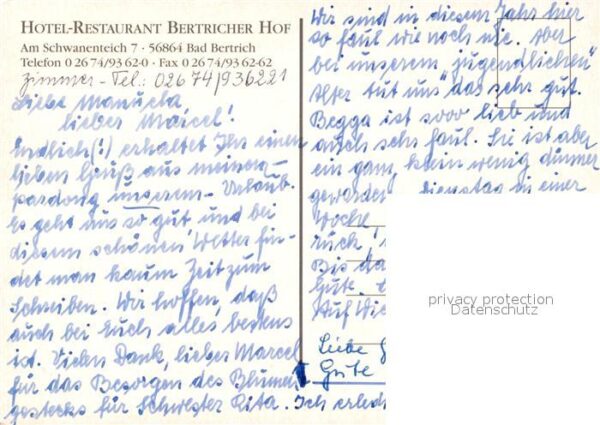 HOTEL-RESTAURANT BERTRICHER HOF
Am Schwanenteich 7 · 56864 Bad Bertrich
Telefon 0 26 74/93 62-0 · Fax 0 26 74/93 62-62
Zimmer-Tel.: 02674/936221
Liebe Manuela
lieber Marcel!
Endlich(!) erhaltet Ihr einen
lieben Gruß aus meinem-
pardong unserem- Urlaub.
Es geht uns so gut und bei
diesem schönen Wetter fin-
det man kaum Zeit zum
Schreiben. Wir hoffen, daß
auch bei Euch alles bestens
ist. Vielen Dank, lieber Marcel
für das Besorgen des Blumen
gestecks für Schwester Rita. Ich erled
Wir sind in diesem Jahr hier
so faul wie noch nie. Aber
bei unserem "jugendlichen"
Alter tut uns das sehr gut.
Begga ist sooo lieb und
auch sehr faul. Sie ist aber
ein ganz klein wenig dünner
geworden
Dienstag in einer
Woche
rück,
Bis da
Gute.
Auf Wie
Liebe G
Gute
privacy protection
Datenschutz